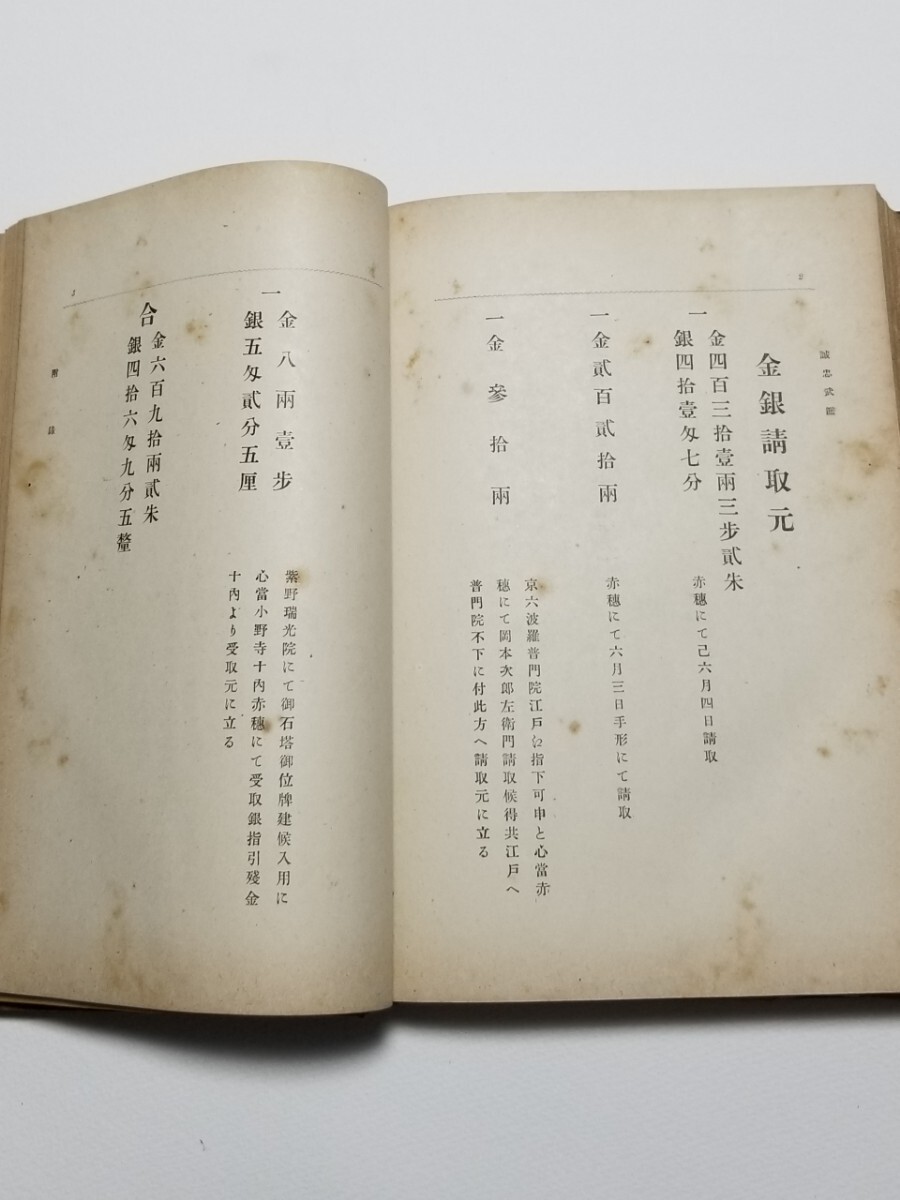 誠忠武鑑
2
金銀請取元
一 金四百三拾壹兩三步貳朱
銀四拾壹匁七分
赤穗にて己六月四日請取
一金貳百貳拾兩
赤穗にて六月三日手形にて請取
一金參拾兩
京六波羅普門院江戶江指下可申と心當赤
穗にて岡本次郎左衞門請取候得共江戶へ
普門院不下に付此方へ請取元に立る
一 金八兩壹步
銀五匁貳分五厘
紫野瑞光院にて御石塔御位牌建候入用に
心當小野寺十內赤穗にて受取銀指引殘金
十內より受取元に立る
合 金六百九拾兩貳朱
銀四拾六匁九分五釐
附錄
3